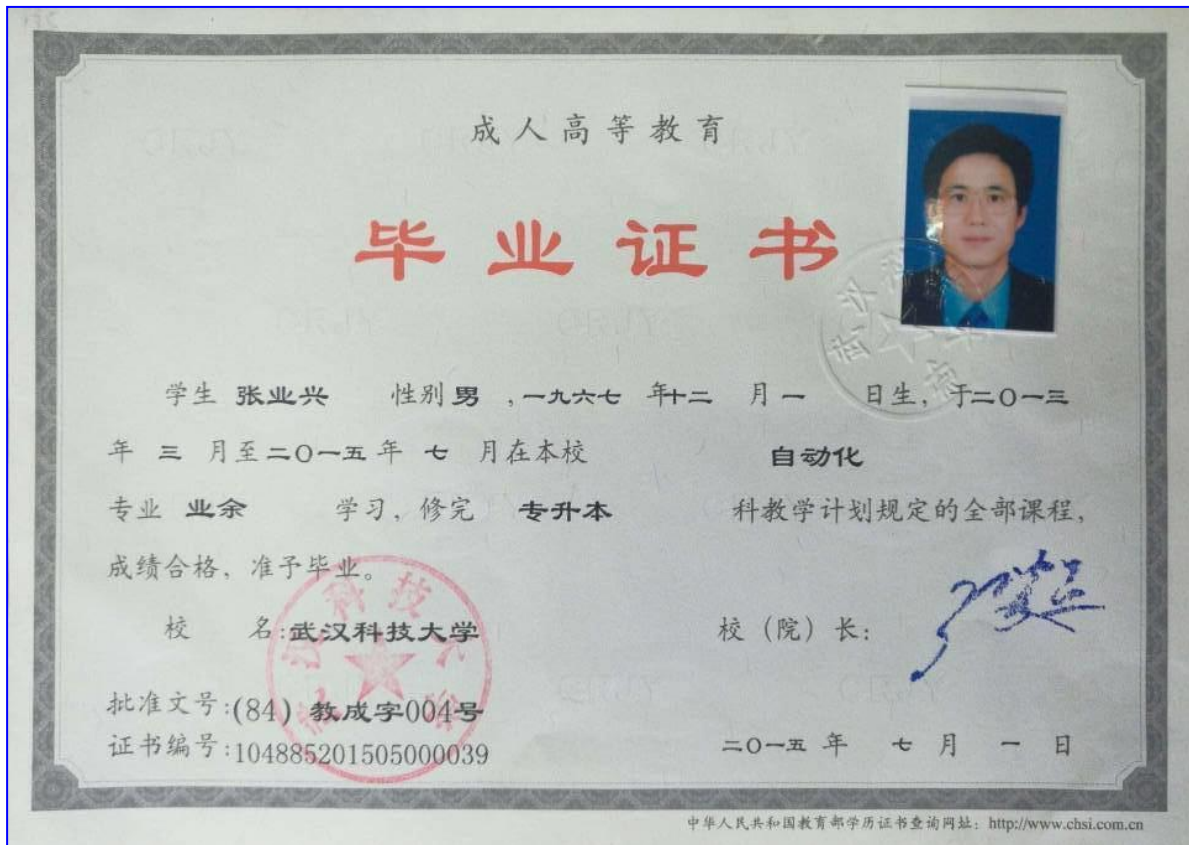 成人高等教育
毕业证书
学生 张业兴 性别 男 ,一九六七 年十二 月 一 日生, 于二〇一三
年 三 月至二〇一五年 七 月在本校 自动化
专业 业余 学习, 修完 专升本 科教学计划规定的全部课程,
成绩合格, 准予毕业。
校 名:武汉科技大学 校(院)长:
批准文号:(84)教成字004号
证书编号:104885201505000039 二〇一五 年 七 月 一 日
中华人民共和国教育部学历证书查询网址: http://www.chsi.com.cn